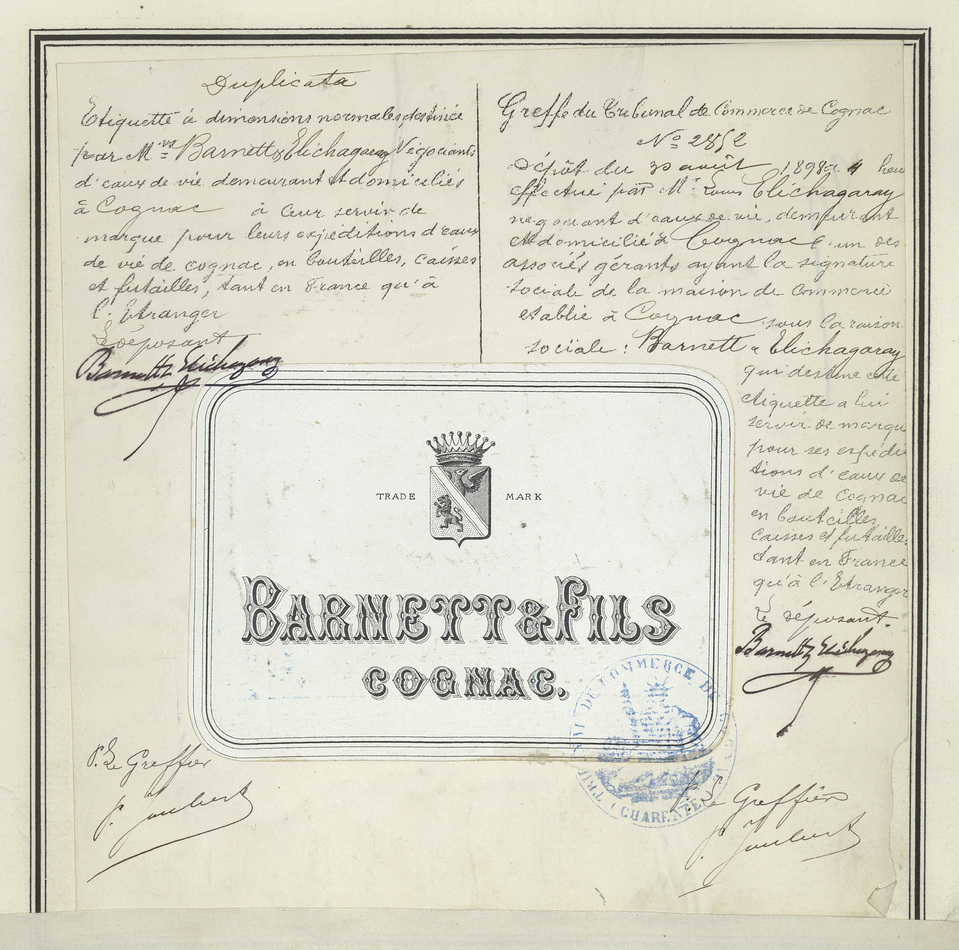 Duplicata
Etiquette à dimensions normales destinée
par M.rs Barnett & Elichagaray Négociants
d'eaux de vie demeurant et domiciliés
à Cognac à leur servir de
marque pour leurs expéditions d'eaux
de vie de cognac, en bouteilles, caisses
et futailles, tant en France qu'à
l'Etranger
Le déposant
Barnett & Elichagaray
Greffe du Tribunal de Commerce de Cognac
No 2852
Dépôt du 30 août 1898 à 4 heu
effectué par Mr Louis Elichagaray
négociant d'eaux de vie, demeurant
et domicilié à Cognac l'un des
associés gérants ayant la signature
sociale de la maison de commerce
etablie à Cognac sous la raison
sociale : Barnett & Elichagaray
qui destine cette
etiquette a lui
servir de marque
pour ses expédi
tions d'eaux de
vie de Cognac
en bouteilles,
caisses et futailles
tant en France
qu'à l'Etranger
Le déposant.
Barnett & Elichagaray
TRADE MARK
BARNETT & FILS
COGNAC.
DE COMMERCE DE
(CHARENTE)
P. Le Greffier
P. Joubert
P. Le Greffier
P. Joubert